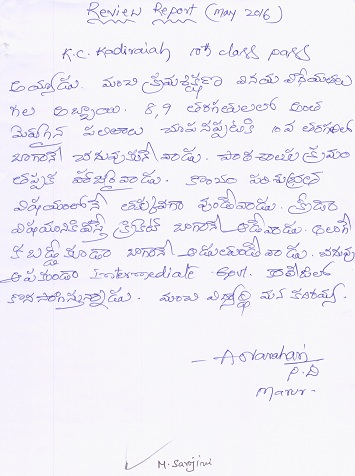 Review Report (May 2016)
K.C. Kadiraiah 10th class pass
అయ్యాడు. మంచి క్రమశిక్షణ వినయ విధేయతలు
గల అబ్బాయి. 8,9 తరగతులలో అంత
మెరుగైన ఫలితాలు చూపనప్పటికి 10వ తరగతిలో
బాగానే చదువుకునే వాడు. పాఠశాలకు క్రమం
తప్పక వచ్చేవాడు. కాని పరిశుభ్రత
విషయంలోనే తక్కువగా వుండేవాడు. క్రీడల
విషయానికొస్తే క్రికెట్ బాగానే ఆడేవాడు. అలాగే
కబడ్డీ కూడా బాగానే ఆడుతుండేవాడు. చదువు
ఆపకుండా Intermediate Govt. కాలేజిలో
కొనసాగిస్తున్నాడు. మంచి విద్యార్థి మన కదిరయ్య.
P.D
Marur.
M. Sarojini